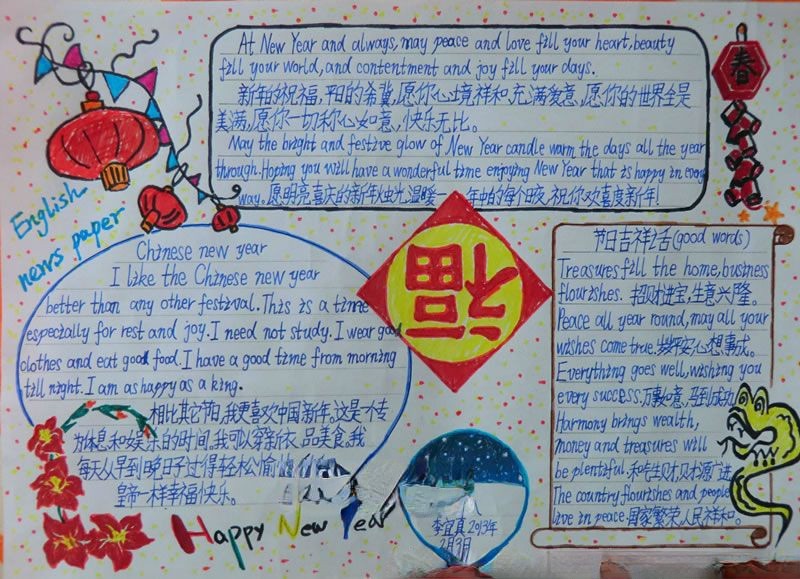 At New Year and always, may peace and love fill your heart, beauty
fill your world, and contentment and joy fill your days.
新年的祝福,平日的希冀,愿你心境祥和、充满爱意,愿你的世界全是
美满,愿你一切称心如意,快乐无比。
May the bright and festive glow of New Year candle warm the days all the year
through. Hoping you will have a wonderful time enjoying New Year that is happy in every
way. 愿明亮喜庆的新年烛光温暖一年中的每个日夜,祝你欢喜度新年!
春
English
news paper
福
Chinese new year
I like the Chinese new year
better than any other festival. This is a time
especially for rest and joy. I need not study. I wear good
clothes and eat good food. I have a good time from morning
till night. I am as happy as a king.
相比其它节日,我更喜欢中国新年。这是个专
为休息和娱乐的时间,我可以穿新衣、品美食。我
每天从早到晚日子过得轻松愉
皇帝一样幸福快乐。
Happy New Year
节日吉祥话(good words)
Treasures fill the home, business
flourishes. 招财进宝,生意兴隆。
Peace all year round, may all your
wishes come true. 岁岁平安,心想事成。
Everything goes well, wishing you
every success. 万事如意,马到成功
Harmony brings wealth,
money and treasures will
be plentiful. 和气生财,财源广进
The country flourishes and people
live in peace. 国家繁荣人民祥和。
李宜真2013年
2月3日